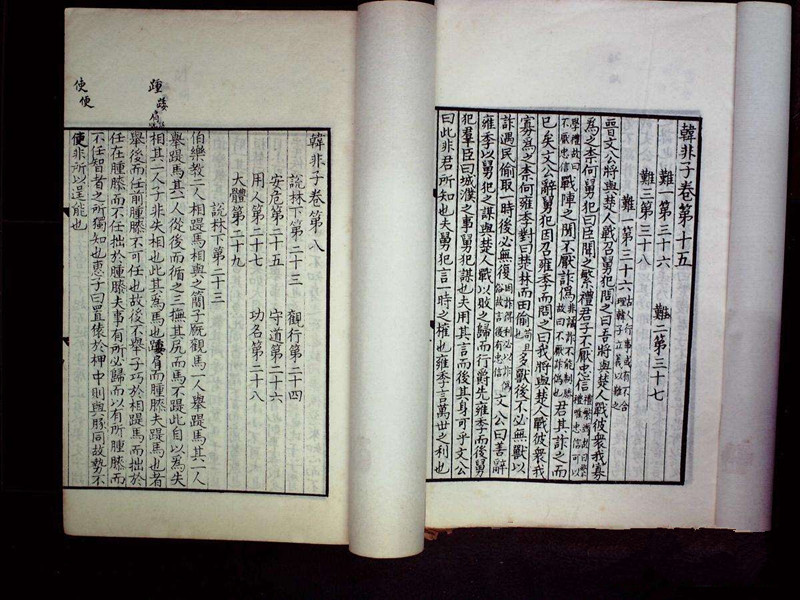 韓非子卷第十五
難一第三十六　難二第三十七
難三第三十八
難一第三十六古人行事或有不合理韓子立義以難之
晉文公將與楚人戰召舅犯問之曰吾將與楚人戰彼衆我寡
為之柰何舅犯曰臣聞之繁禮君子不厭忠信禮唯忠信可以
學禮故曰不厭忠信戰陣之閒不厭詐偽非譎詐不能制勝故曰不厭詐偽也君其詐之而
已矣文公辭舅犯因召雍季而問之曰我將與楚人戰彼衆我
寡為之柰何雍季對曰焚林而田偷苟且取多獸後不必無獸以
詐遇民偷取一時後必無復因詐得利必以詐偽俗故言後有忠信文公曰善辭
雍季以舅犯之謀與楚人戰以敗之歸而行爵先雍季而後舅
犯羣臣曰城濮之事舅犯謀也夫用其言而後其身可乎文公
曰此非君所知也夫舅犯言一時之權也雍季言萬世之利也
韓非子卷第八
說林下第二十三　觀行第二十四
安危第二十五　守道第二十六
用人第二十七　功名第二十八
大體第二十九
說林下第二十三
伯樂教二人相踶馬相與之簡子廄觀馬一人舉踶馬其一人
舉踶馬其一人從後而循之三撫其尻而馬不踶此自以為失
相其一人子非失相也此其為馬也踒肩而腫膝夫踶馬也者
舉後而任前腫膝不可任也故後不舉子巧於相踶馬而拙於
任在腫膝而不任拙於腫膝夫事有所必歸而以有所腫膝而
不任智者之所獨知也惠子曰置猨於柙中則與豚同故勢不
使非所以逞能也
踵
踒
使
便